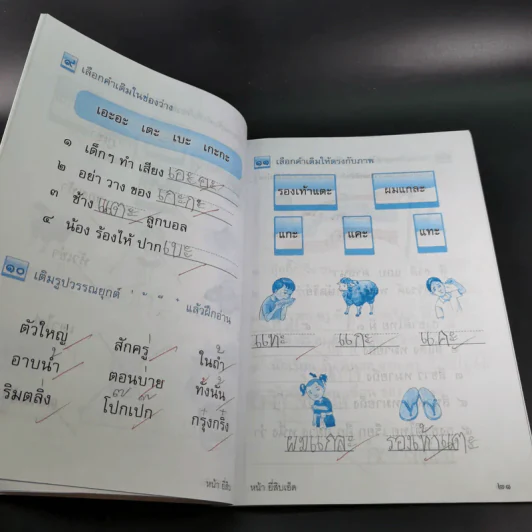 ๙ เลือกคำเติมในช่องว่าง
เอะอะ เตะ เบะ เกะกะ
๑ เด็กๆ ทำ เสียง
๒ อย่า วาง ของ เกะกะ
๓ ช้าง เตะ ลูกบอล
๔ น้อง ร้องไห้ ปาก เบะ
๑๐ เติมรูปวรรณยุกต์ ่ ้ ๊ ๋ แล้วฝึกอ่าน
ตัวใหญ่ สักครู่ ในถ้ำ
อาบน้ำ ตอนบ่าย ทั้งนั้น
ริมตลิ่ง โป๊กเป๊ก กรุ๋งกริ๋ง
หน้า ยี่สิบ
๑๑ เลือกคำเติมให้ตรงกับภาพ
รองเท้าแตะ ผมแกละ
แกะ แคะ แทะ
แทะ แกะ แคะ
ผมแกละ รองเท้าแตะ
หน้า ยี่สิบเอ็ด ๒๑